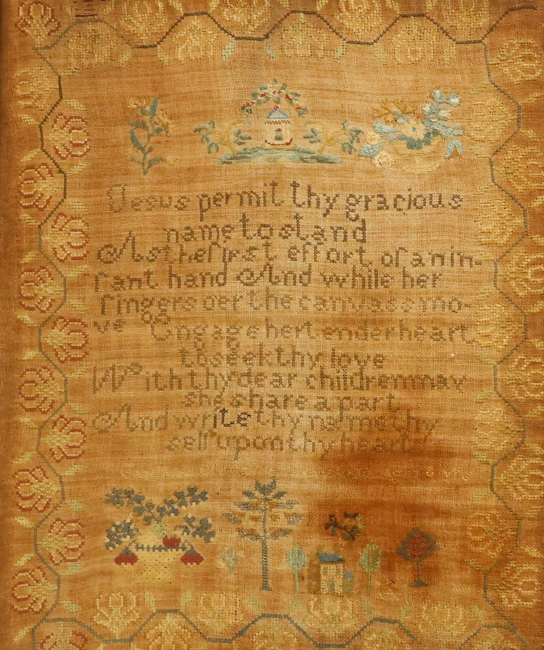 Jesus permit thy gracious
name to stand
As the first effort of an in-
fant hand And while her
fingers oer the canvass mo-
ve Engage her tender heart
to seek thy love
With thy dear children may
she share a part
And write thy name thy
self upon thy heart